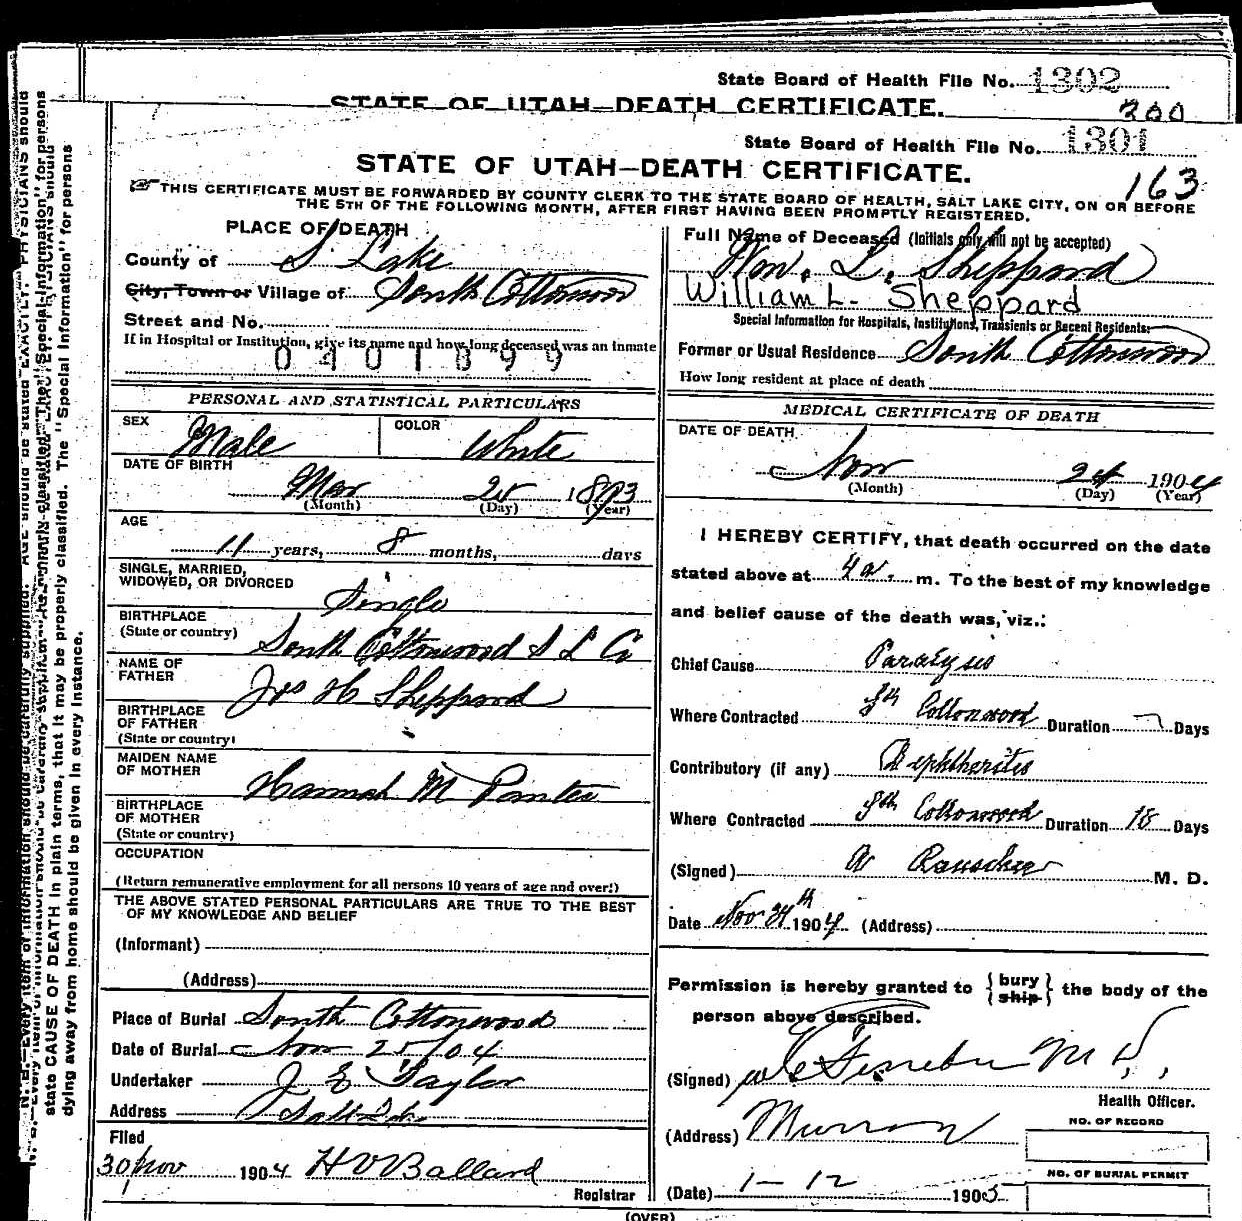 State Board of Health File No. 1302
STATE OF UTAH—DEATH CERTIFICATE.
200
State Board of Health File No. 1301
STATE OF UTAH—DEATH CERTIFICATE.
163
THIS CERTIFICATE MUST BE FORWARDED BY COUNTY CLERK TO THE STATE BOARD OF HEALTH, SALT LAKE CITY, ON OR BEFORE
THE 5TH OF THE FOLLOWING MONTH, AFTER FIRST HAVING BEEN PROMPTLY REGISTERED.
PLACE OF DEATH
County of S Lake
City, Town or Village of South Cottonwood
Street and No.
If in Hospital or Institution, give its name and how long deceased was an inmate
0401899
Full Name of Deceased (Initials only will not be accepted)
Wm. L. Sheppard
William L. Sheppard
Special Information for Hospitals, Institutions, Transients or Recent Residents:
Former or Usual Residence South Cottonwood
How long resident at place of death
PERSONAL AND STATISTICAL PARTICULARS
SEX Male COLOR White
DATE OF BIRTH
Mar 25 1893
(Month) (Day) (Year)
AGE
11 years, 8 months, days
SINGLE, MARRIED,
WIDOWED, OR DIVORCED
Single
BIRTHPLACE
(State or country) South Cottonwood S L Co
NAME OF
FATHER Jos H Sheppard
BIRTHPLACE
OF FATHER
(State or country)
MAIDEN NAME
OF MOTHER Hannah M
BIRTHPLACE
OF MOTHER
(State or country)
OCCUPATION
(Return remunerative employment for all persons 10 years of age and over.)
THE ABOVE STATED PERSONAL PARTICULARS ARE TRUE TO THE BEST
OF MY KNOWLEDGE AND BELIEF
(Informant)
(Address)
Place of Burial South Cottonwood
Date of Burial Nov 25/04
Undertaker J E Taylor
Address Salt Lake
Filed
30/Nov 1904 H V Ballard
Registrar
MEDICAL CERTIFICATE OF DEATH
DATE OF DEATH
Nov 24 1904
(Month) (Day) (Year)
I HEREBY CERTIFY, that death occurred on the date
stated above at 4 a. m. To the best of my knowledge
and belief cause of the death was, viz.:
Chief Cause Paralysis
Where Contracted Sth Cottonwood Duration 7 Days
Contributory (if any) Diphtheritis
Where Contracted Sth Cottonwood Duration 18 Days
(Signed) W Rauscher M. D.
Date Nov 24th 1904 (Address)
Permission is hereby granted to {bury
ship} the body of the
person above described.
(Signed) M D,
Health Officer.
(Address) Murray
NO. OF RECORD
NO. OF BURIAL PERMIT
(Date) 1-12 1905
(OVER)
state CAUSE OF DEATH in plain terms, that it may be properly classified. The "Special Information" for persons
dying away from home should be given in every instance.